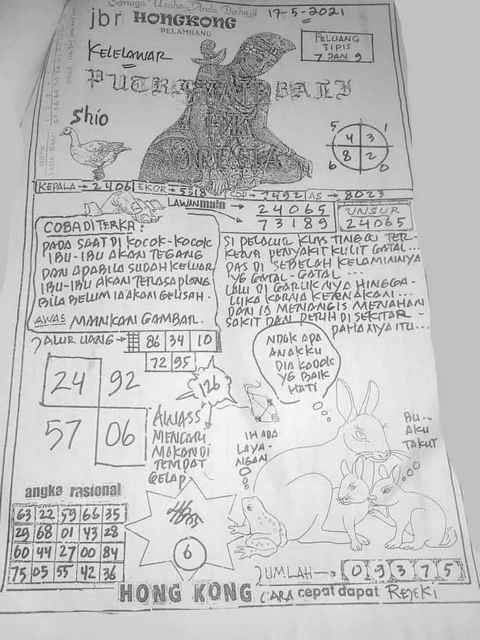 Semoga Usaha Anda Berhasil
jbr HONGKONG
PELAMBANG
17-5-2021
KELELAWAR
PELUANG
TIPIS
7 DAN 9
PUTRI
BALI
HK
Shio
5 1
4 3
8 2
6 0
KEPALA → 2406 EKOR → 5318
AS → 8023
LAWAN main → 24065
73189
UNSUR
24065
COBA DI TERKA:
PADA SAAT DI KOCOK-KOCOK
IBU-IBU AKAN TEGANG
DAN APABILA SUDAH KELUAR
IBU-IBU AKAN TERASA PLONG
BILA BELUM IA AKAN GELISAH.
AWAS MAINKAN GAMBAR.
SI PELACUR KLAS TINGGI TER-
KENA PENYAKIT KULIT GATAL..
PAS DI SEBELAH KELAMIANNYA
YG GATAL-GATAL...
LALU DI GARUKNYA HINGGA-
LUKA KARNA KEENAKAN...
DAN IA MENANGIS MENAHAN
SAKIT DAN PERIH DI SEKITAR-
PAHANYA ITU...
JALUR UANG → 86 34 10
72 95
24 92
57 06
126
AWASS
MENCARI
MAKAN DI
TEMPAT
GELAP
NDAK APA
ANAKKU
DIA KODOK
YG BAIK
HATI
IH ADA
LAYA-
NGAN
BU...
AKU
TAKUT
angka rasional
63 22 59 66 35
29 68 01 43 28
60 44 27 00 84
75 05 55 42 36
6
JUMLAH → 0 9 3 7 5
HONG KONG CARA cepat dapat REJEKI